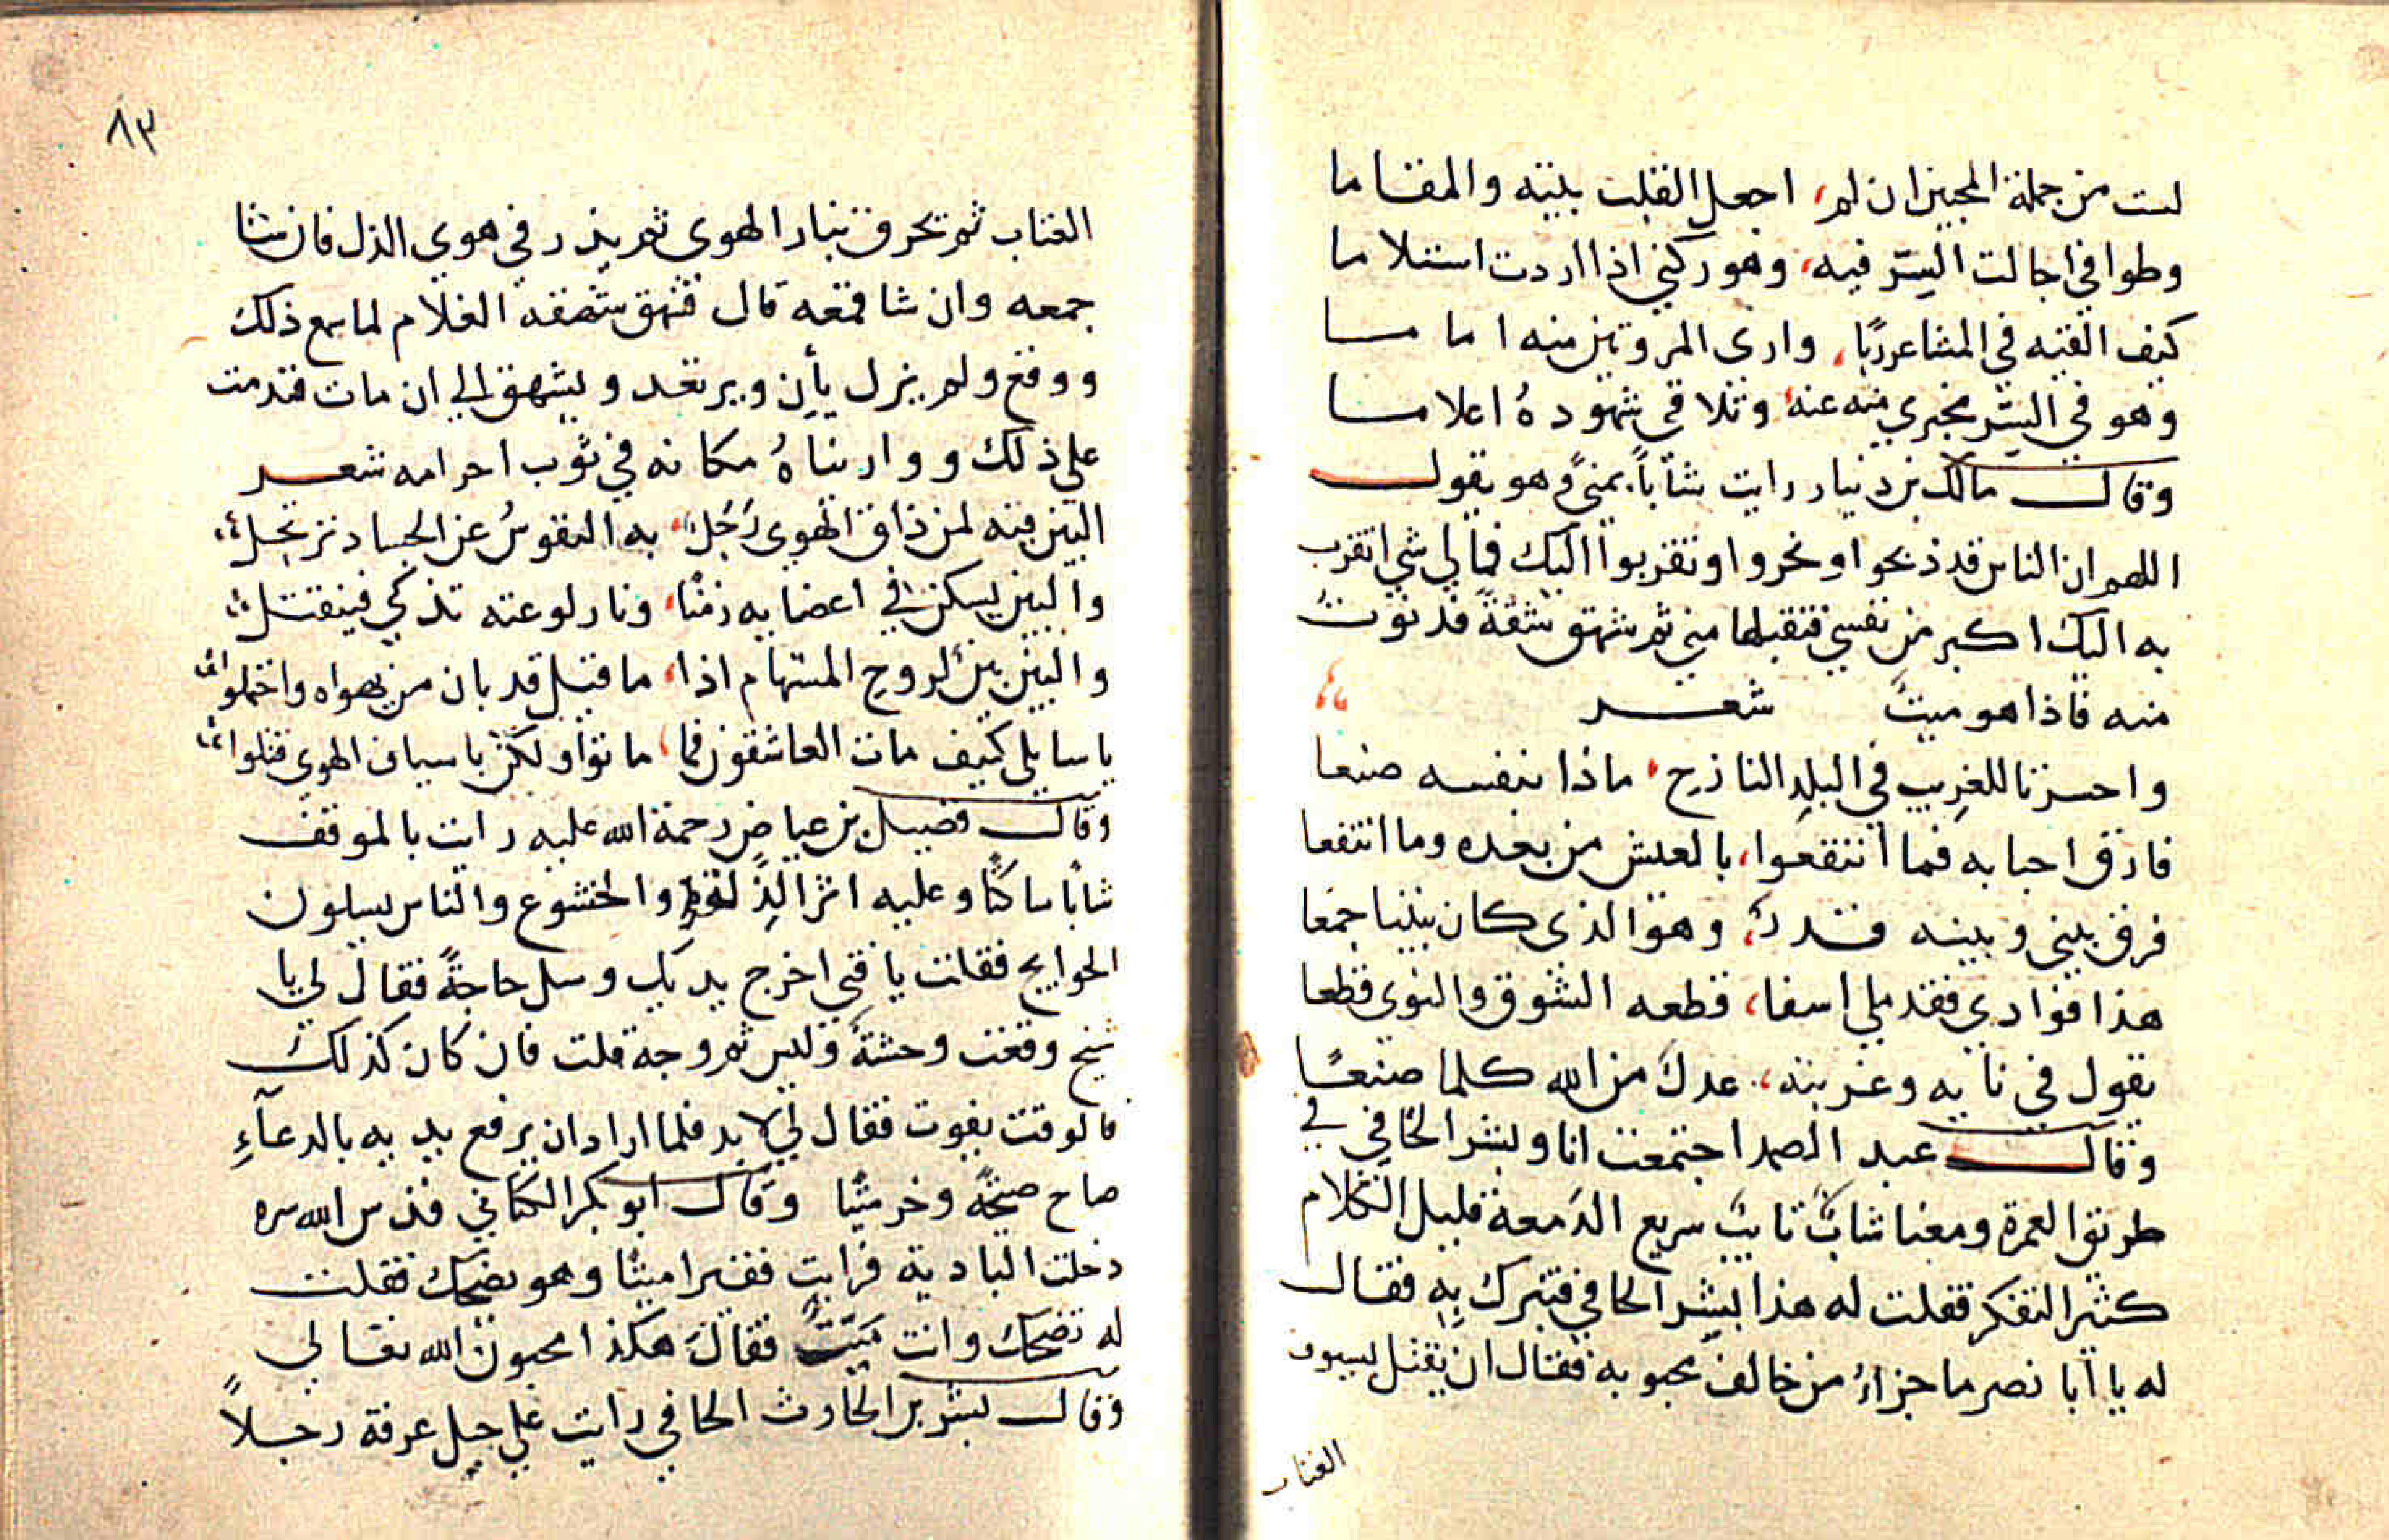 لست من جملة المحبين ان لم، اجعل القلب بيته والمقاما
وطوافي اجالت السر فيه، وهو ركني اذا اردت استلاما
كيف الفته في المشاعر ربًا، وارى المروتين منه اماما
وهو في السر مخبري منه عنه، وتلاقي شهوده اعلاما
وقال مالك بن دينار رايت شاباً بمنىً وهو يقول
اللهم ان الناس قد ذبحوا ونحروا وتقربوا اليك فمالي شي اتقرب
به اليك اكبر من نفسي فتقبلها مني ثم شهق شقة
منه فاذا هو ميت شعر
واحسرتا للغريب في البلد النازح، ماذا بنفسه صنعا
فارق احبابه فما انتفعوا، بالعيش من بعده وما انتفعا
فرق بيني وبينه قدر، وهو الذي كان بيننا جمعا
هذا فوادي فقد ملي اسفا، قطعه الشوق والنوى قطعا
يقول في نايه وغربته، عدل من الله كلما صنعًا
وقال عبد الصمد اجتمعت انا وبشر الحافي في
طريق العمرة ومعنا شابٌ تايبٌ سريع الدمعة قليل الكلام
كثير التفكر فقلت له هذا بشر الحافي فتبرك به فقال
له يا ابا نصر ما جزاءُ من خالف محبوبه فقال ان يقتل بسيوف
العتاب
٨٣
العتاب ثم تحرق بنار الهوى ثم يذر في هوي الذل فان شا
جمعه وان شا قمعه قال فشهق شهقة الغلام لما سمع ذلك
ووقع ولم يزل يأن ويرتعد ويشهق الى ان مات فندمت
على ذلك وواريناهُ مكانه في ثوب احرامه شعر
البين فيه لمن ذاق الهوى رَجُل، به النفوسُ عن الجساد ترتحل
والبين يسكن في اعضايه زمنًا، ونار لوعته تذكي فيقتتل
والبين بين لروح المستهام اذا، ما قيل قد بان من يهواه واحتملوا
يا سايلي كيف مات العاشقون فما، ماتوا ولكن باسياف الهوى قتلوا
وقال فضيل بن عياض رحمة الله عليه رايت بالموقف
شابًا ساكتًا وعليه اثر الذل والخشوع والناس يسلون
الحوايج فقلت يا فتى اخرج يديك وسل حاجةً فقال لي يا
شيخ وقعت وحشةً وليس ثم وجه قلت فان كان كذلك
فالوقت يفوت فقال لي لا بد فلما اراد ان يرفع يديه بالدعآءِ
صاح صيحةً وخر ميتًا وقال ابو بكر الكتاني قدس الله سره
دخلت البادية فرايت فقيرا ميتًا وهو يضحك فقلت
له تضحك وانت ميت فقال هكذا محبون الله تعالى
وقال بشر بن الحارث الحافي رايت على جبل عرفة رجلاً